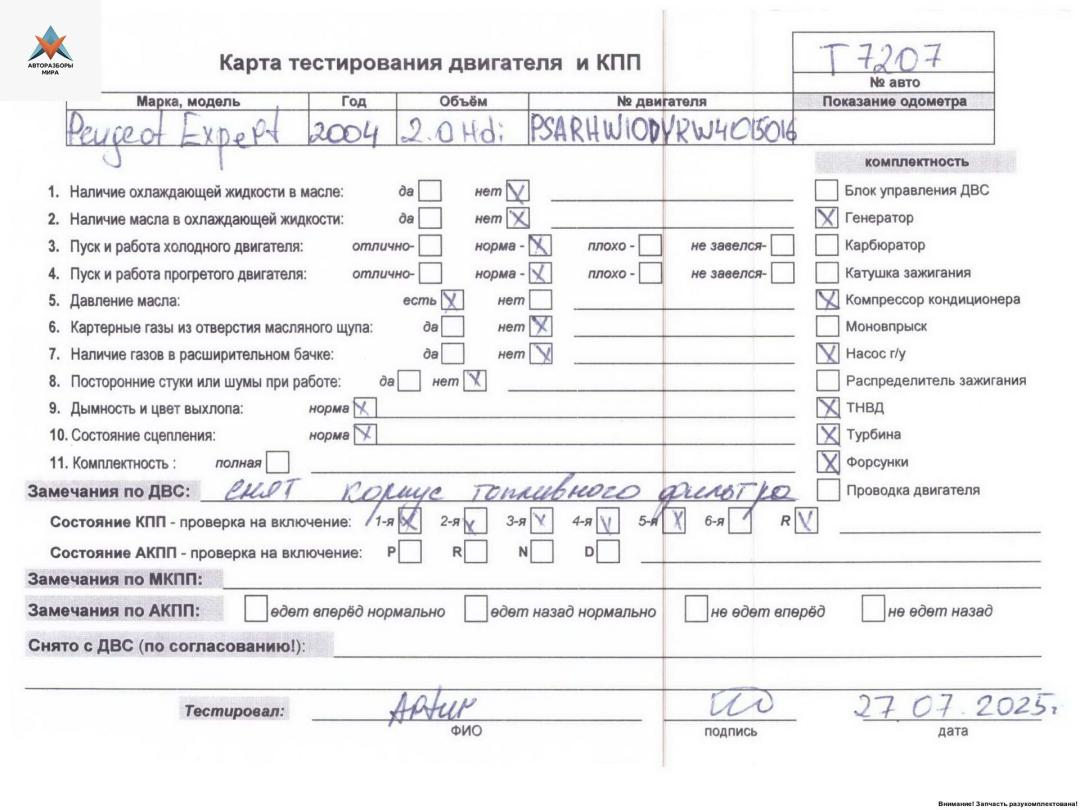 АВТОРАЗБОРЫ
МИРА
Карта тестирования двигателя и КПП
T 7207
№ авто
Марка, модель Год Объём № двигателя Показание одометра
Peugeot Expert 2004 2.0 Hdi PSARHW10DYRW4015016
комплектность
1. Наличие охлаждающей жидкости в масле: да нет V
Блок управления ДВС
2. Наличие масла в охлаждающей жидкости: да нет X
X Генератор
3. Пуск и работа холодного двигателя: отлично- норма - X плохо - не завелся-
Карбюратор
4. Пуск и работа прогретого двигателя: отлично- норма - X плохо - не завелся-
Катушка зажигания
5. Давление масла: есть X нет
X Компрессор кондиционера
6. Картерные газы из отверстия масляного щупа: да нет X
Моновпрыск
7. Наличие газов в расширительном бачке: да нет V
V Насос г/у
8. Посторонние стуки или шумы при работе: да нет X
Распределитель зажигания
9. Дымность и цвет выхлопа: норма X
X ТНВД
10. Состояние сцепления: норма X
X Турбина
11. Комплектность : полная
X Форсунки
Замечания по ДВС: снят корпус топливного фильтра
Проводка двигателя
Состояние КПП - проверка на включение: 1-я X 2-я X 3-я V 4-я V 5-я X 6-я R V
Состояние АКПП - проверка на включение: P R N D
Замечания по МКПП:
Замечания по АКПП: едет вперёд нормально едет назад нормально не едет вперёд не едет назад
Снято с ДВС (по согласованию!):
Тестировал: Артур 27 07. 2025г.
ФИО подпись дата
Внимание! Запчасть разукомплектована!